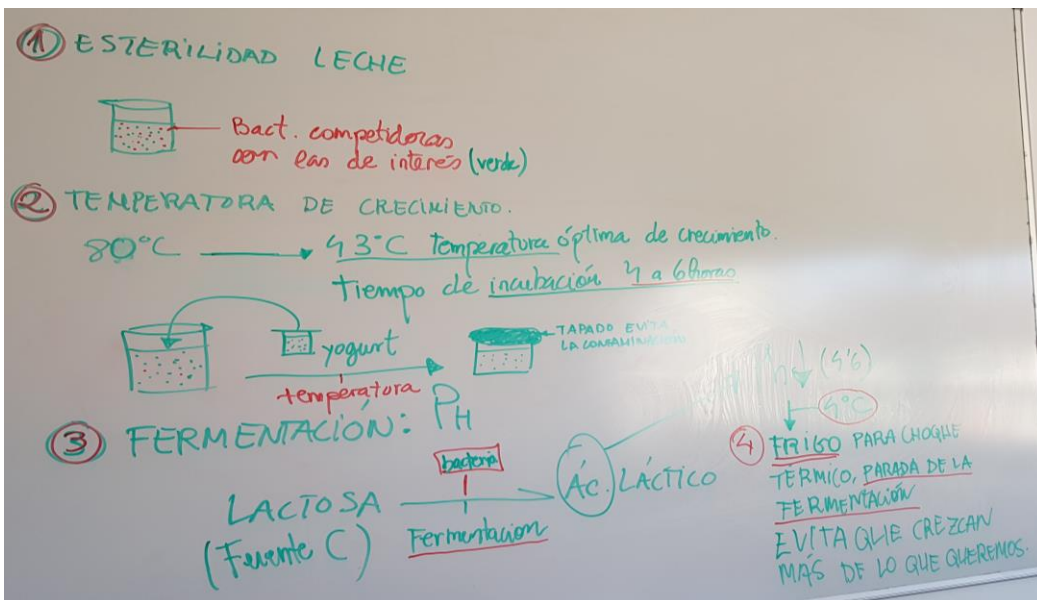 1 ESTERILIDAD LECHE
Bact. competidoras
con las de interés (verde)
2 TEMPERATURA DE CRECIMIENTO.
80°C 43°C temperatura óptima de crecimiento.
Tiempo de incubación 4 a 6 horas
yogurt
temperatura
TAPADO EVITA
LA CONTAMINACIÓN
3 FERMENTACIÓN: PH
(4'6)
4°C
bacteria
LACTOSA Ác. LÁCTICO
(Fuente C) Fermentacion
4 FRIGO PARA CHOQUE
TÉRMICO, PARADA DE LA
FERMENTACIÓN
EVITA QUE CREZCAN
MÁS DE LO QUE QUEREMOS.